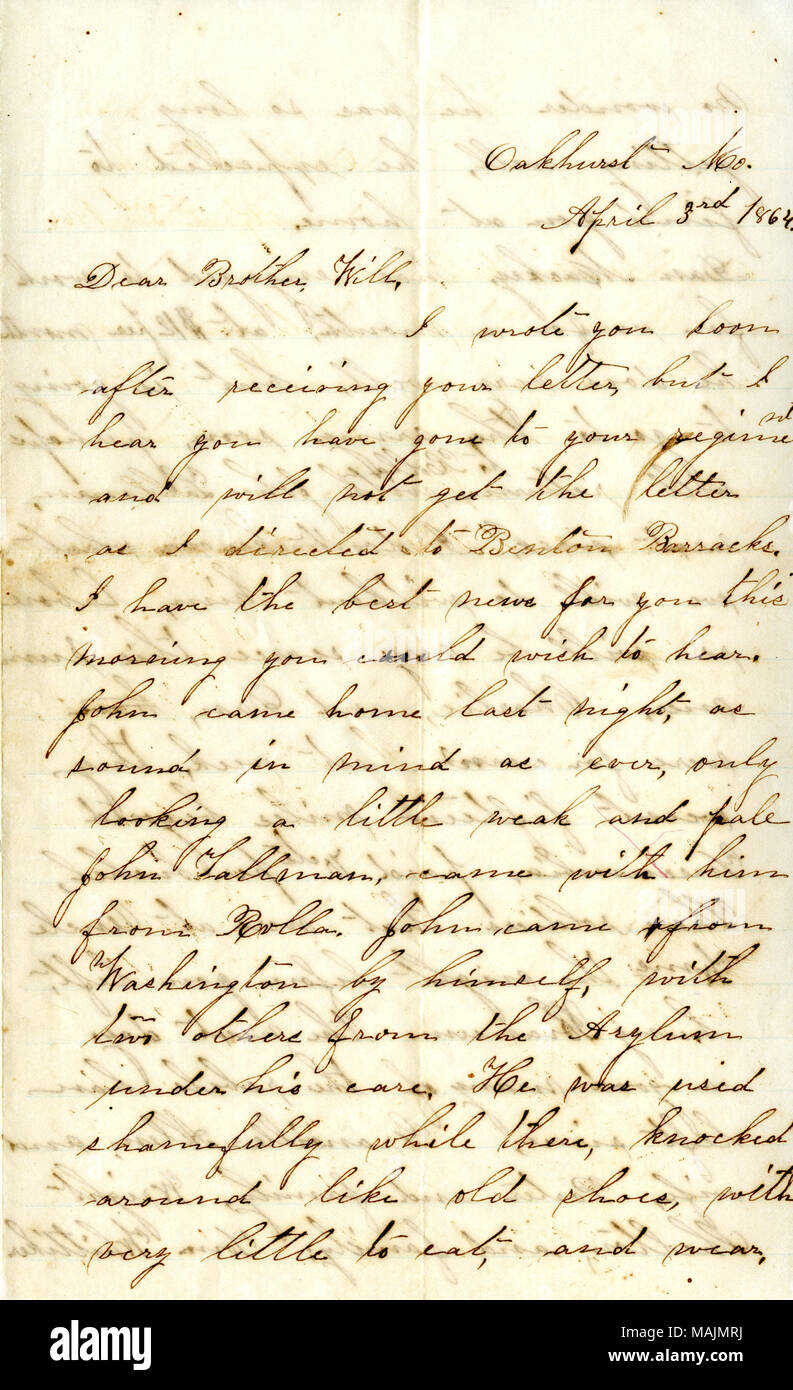 Oakhurst Mo.
April 3rd 1864.
Dear Brother, Will,
I wrote you soon
after receiving your letter, but I
hear you have gone to your regiment
and will not get the letter
as I directed to Benton Barracks.
I have the best news for you this
morning you could wish to hear.
John came home last night, as
sound in mind as ever, only
looking a little weak and pale
John Tallman, came with him
from Rolla. John came from
Washington by himself, with
two others from the Asylum
under his care. He was used
shamefully while there, knocked
around like old shoes, with
very little to eat, and wear,
alamy
Image ID: MAJMRJ
www.alamy.com